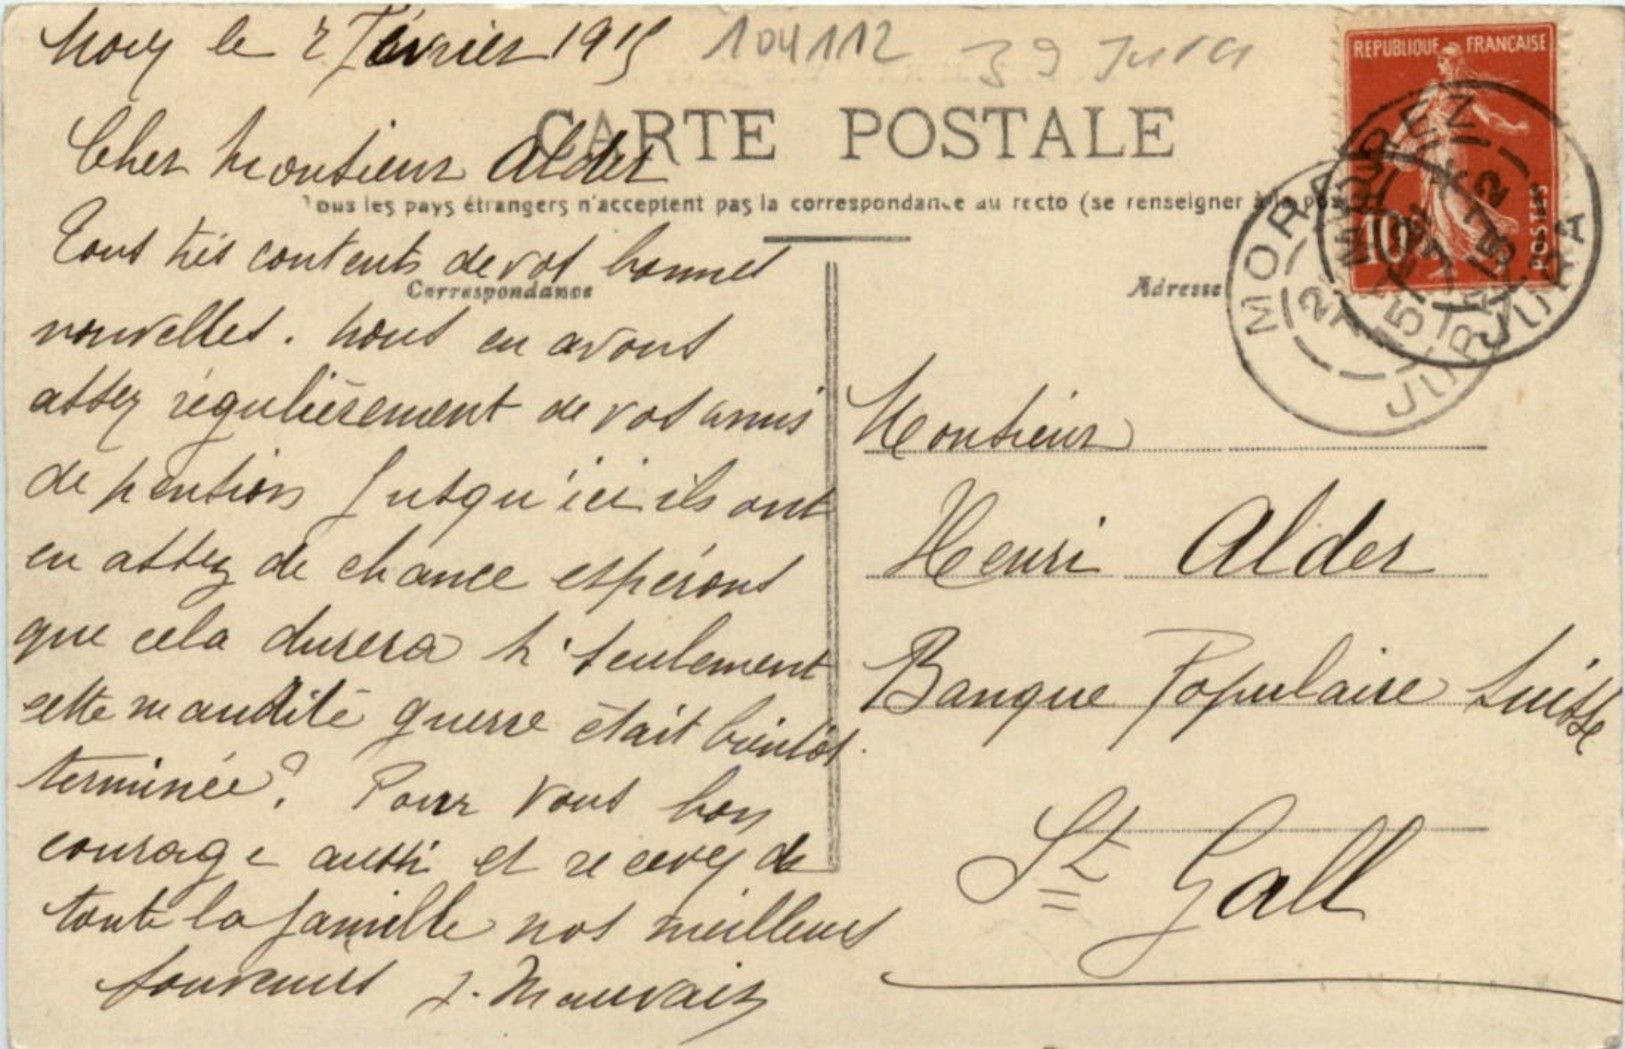 le 2 Février 1915
104112 39 Jura
CARTE POSTALE
Tous les pays étrangers n'acceptent pas la correspondance au recto (se renseigner à la poste)
Correspondance
Cher Monsieur Alder
Tous très contents de vos bonnes
nouvelles. nous en avons
assez régulièrement de vos amis
de pension Jusqu'ici ils ont
eu assez de chance espérons
que cela durera si seulement
cette maudite guerre était bientôt
terminée? Pour vous bon
courage aussi et recevez de
toute la famille nos meilleurs
souvenirs J. Mauvais
Adresse
Monsieur
Henri Alder
Banque Populaire Suisse
St Gall
REPUBLIQUE FRANÇAISE
10
POSTES
MOREZ
JURA
MOREZ
JURA